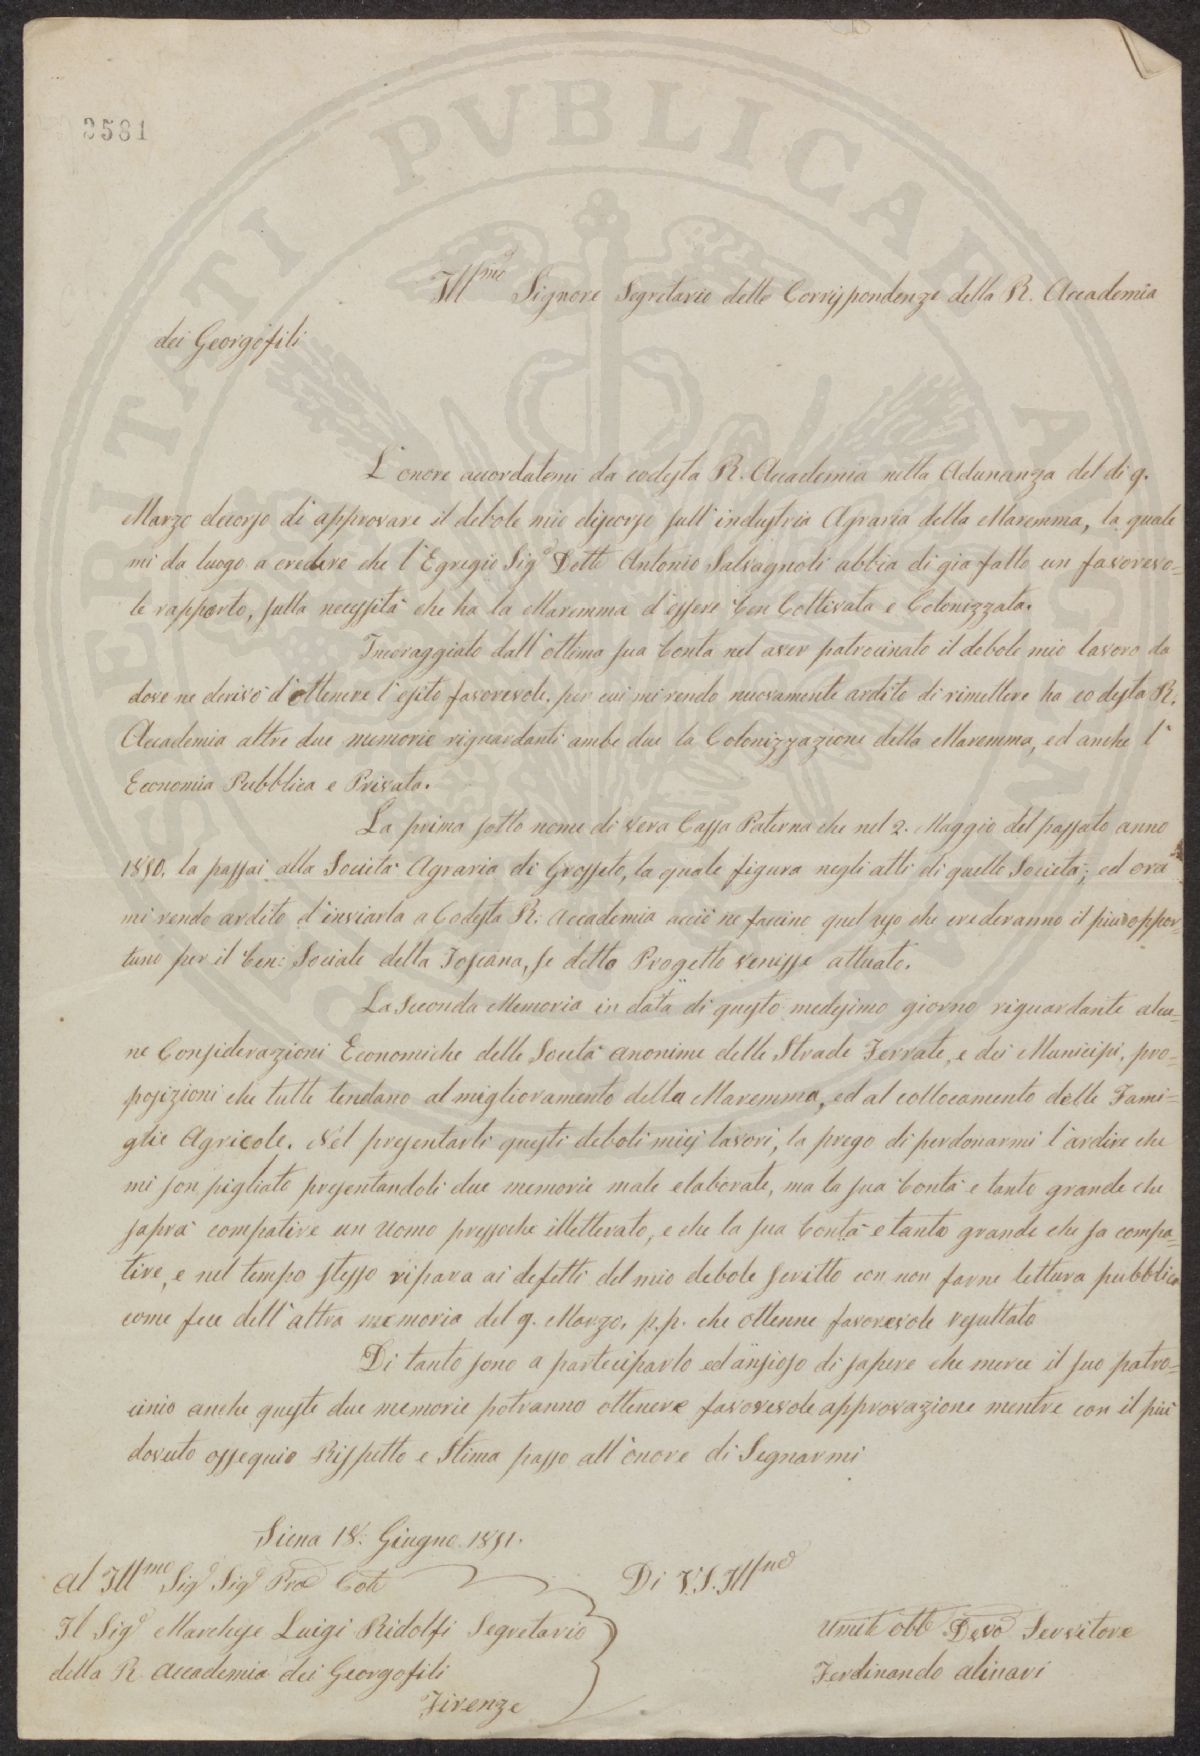 3581
Ill.mo Signore Segretario delle Corrispondenze della R. Accademia
dei Georgofili
L'onore accordatomi da codesta R. Accademia nella Adunanza del di 9.
Marzo decorso di approvare il debole mio discorso sull'industria Agraria della Maremma, la quale
mi da luogo a credere che l'Egregio Sig.e Dotto Antonio Salvagnoli abbia di gia fatto un favorevo=
le rapporto, sulla necessità che ha la Maremma d'essere ben Coltivata e Colonizzata.
Incoraggiato dall'ottima sua bontà nel aver patrocinato il debole mio lavoro da
dove ne derivò d'ottenere l'esito favorevole. per cui mi rendo nuovamente ardito di rimettere ha codesta R.
Accademia altre due memorie riguardanti ambe due la Colonizzazione della Maremma, ed anche l'
Economia Pubblica e Privata.
La prima sotto nome di vera Cassa Paterna che nel 2. Maggio del passato anno
1850. la passai alla Società Agraria di Grosseto, la quale figura negli atti di quella Società; ed ora
mi rendo ardito d'inviarla a Codesta R. Accademia acciò ne faccino quel uso che crederanno il più oppor=
tuno per il ben: Sociale della Toscana, se detto Progetto venisse attuato.
La Seconda Memoria in data di questo medesimo giorno riguardante alcu=
ne Considerazioni Economiche delle Società anonime delle Strade Ferrate, e dei Municipi, pro=
posizioni che tutte tendano al miglioramento della Maremma, ed al collocamento delle Fami=
glie Agricole. Nel presentarli questi deboli miej lavori, la prego di perdonarmi l'ardire che
mi son pigliato presentandoli due memorie male elaborate, ma la sua bontà e tanto grande che
saprà compatire un uomo pressoche illetterato, e che la sua bontà e tanto grande che sa compa=
tire, e nel tempo stesso ripara ai defetti del mio debole scritto con non farne lettura pubblica
come fece dell'altra memoria del 9. Marzo. p.p. che ottenne favorevole resultato
Di tanto sono a parteciparlo ed ansioso di sapere che merce il suo patro=
cinio anche queste due memorie potranno ottenere favorevole approvazione mentre con il più
dovuto ossequio Rispetto e Stima passo all'onore di Segnarmi
Siena 18: Giugno 1851.
Al Ill.mo Sig.e Sig.e Pro.e Col.
Il Sig.e Marchese Luigi Ridolfi Segretario
della R. Accademia dei Georgofili
Firenze
Di V.S. Ill.ma
Umil.e Obb. Devo. Servitore
Ferdinando Alinari